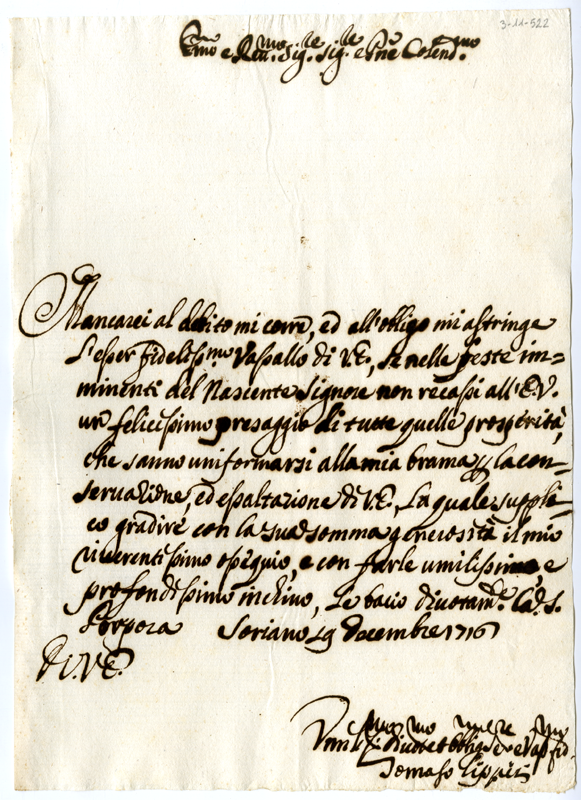 3-11-522
Em̃o e Reu.mo Sig.re Sig.re e Pñe Colend.mo
Mancarei al debito mi corre, ed all'obligo mi astringe
l'esser fidelissmo Vassallo di V.E., se nelle feste im=
minenti del Nascente Signore non recassi all'E.V.
un felicissimo presaggio di tutte quelle prosperità,
che sanno uniformarsi alla mia brama la con=
seruazione, ed essaltazione di V.E., la quale suppli=
co gradire con la sua somma generosità il mio
riuerentissimo ossequio, e con farle umilissimo e
profondissimo inchino, le bacio diuotam.te la S.
Porpora Soriano 19 Decembre 1716
Di V.E.
Vmil.mo Diuot.mo et obblig.mo Ser.re e Vass. fid.mo
Tomaso Lippi